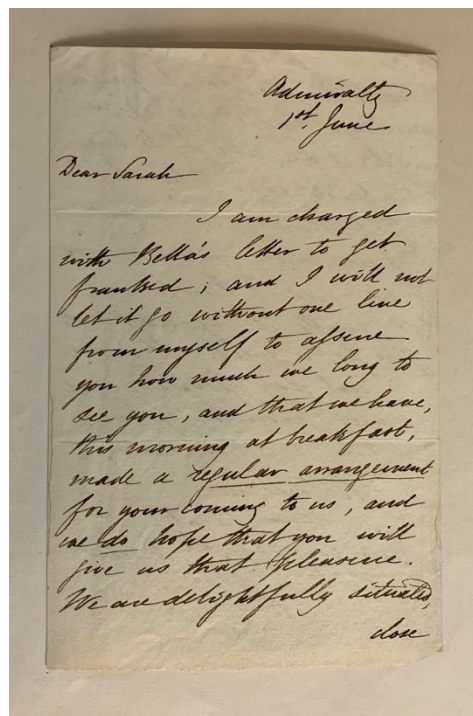 Admiralty
1st. June
Dear Sarah
I am charged
with Bella's letter to get
franked; and I will not
let it go without one line
from myself to assure
you how much we long to
see you, and that we have,
this morning at breakfast,
made a regular arrangement
for your coming to us, and
we do hope that you will
give us that pleasure.
We are delightfully situated,
close